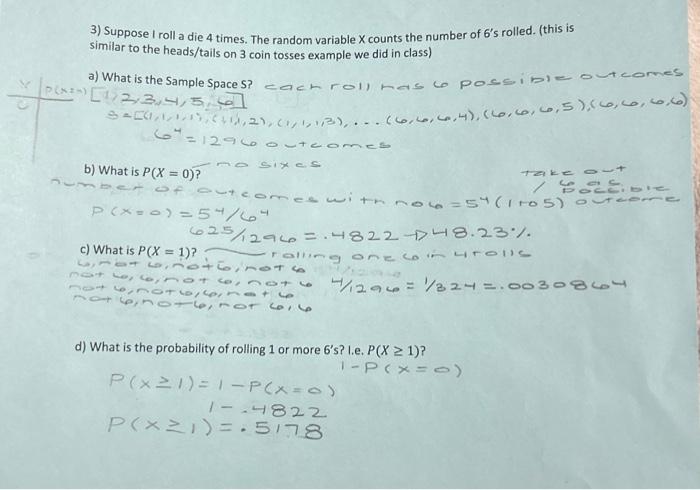 3) Suppose I roll a die 4 times. The random variable X counts the number of 6's rolled. (this is
similar to the heads/tails on 3 coin tosses example we did in class)
a) What is the Sample Space S? each roll has 6 possible outcomes
X P(X=x) [1,2,3,4,5,6]
S=[(1,1,1,1),(1,1,1,2),(1,1,1,3),... (6,6,6,4),(6,6,6,5),(6,6,6,6)
6^4=1296 outcomes
b) What is P(X = 0)? no sixes
take out
6 as
possible
number of outcomes with no 6 = 5^4 (1 to 5) outcome
P(x=0) = 5^4/6^4
625/1296 = .4822 → 48.23%.
c) What is P(X = 1)? rolling one 6 in 4 rolls
6, not 6, not 6, not 6
not 6, 6, not 6, not 6 4/1296 = 1/324 = .0030864
not 6, not 6, 6, not 6
not 6, not 6, not 6, 6
d) What is the probability of rolling 1 or more 6's? I.e. P(X ≥ 1)?
1-P(x=0)
P(x≥1) = 1-P(x=0)
1-.4822
P(x≥1) = .5178